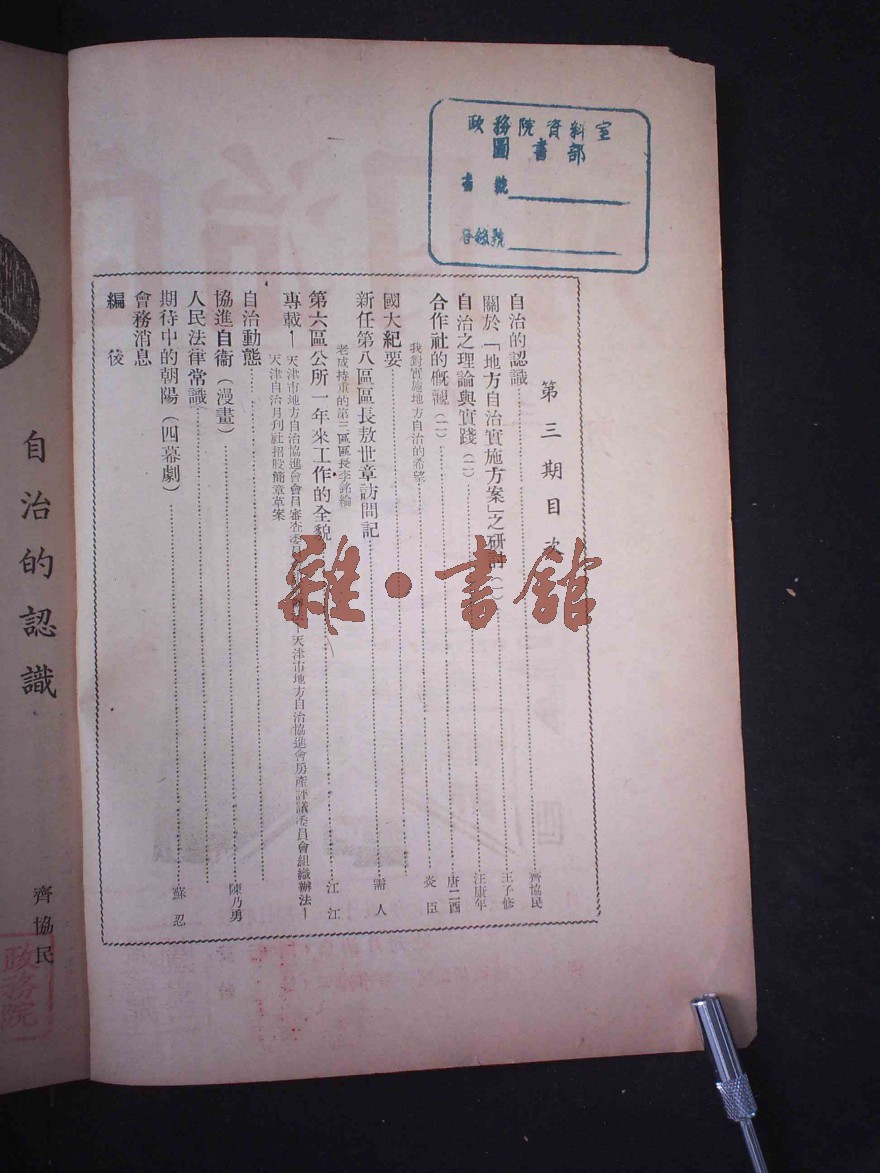 政務院資料室
圖書部
書號
登錄號
第三期目次
自治的認識 齊協民
關於「地方自治實施方案」之研討(一) 王子修
自治之理論與實踐(二) 汪康年
合作社的概觀(二) 唐二酉
我對實施地方自治的希望 炎臣
國大紀要
新任第八區區長敖世章訪問記 需人
老成持重的第三區區長李銘綸
第六區公所一年來工作的全貌 江江
專載—天津市地方自治協進會會員審查委員 天津市地方自治協進會房產評議委員會組織辦法—
天津自治月刊社招股簡章草案
自治動態
協進自衞(漫畫) 陳乃勇
人民法律常識
期待中的朝陽(四幕劇) 蘇忍
會務消息
編後
雜·書館
自治的認識
齊協民
政務院